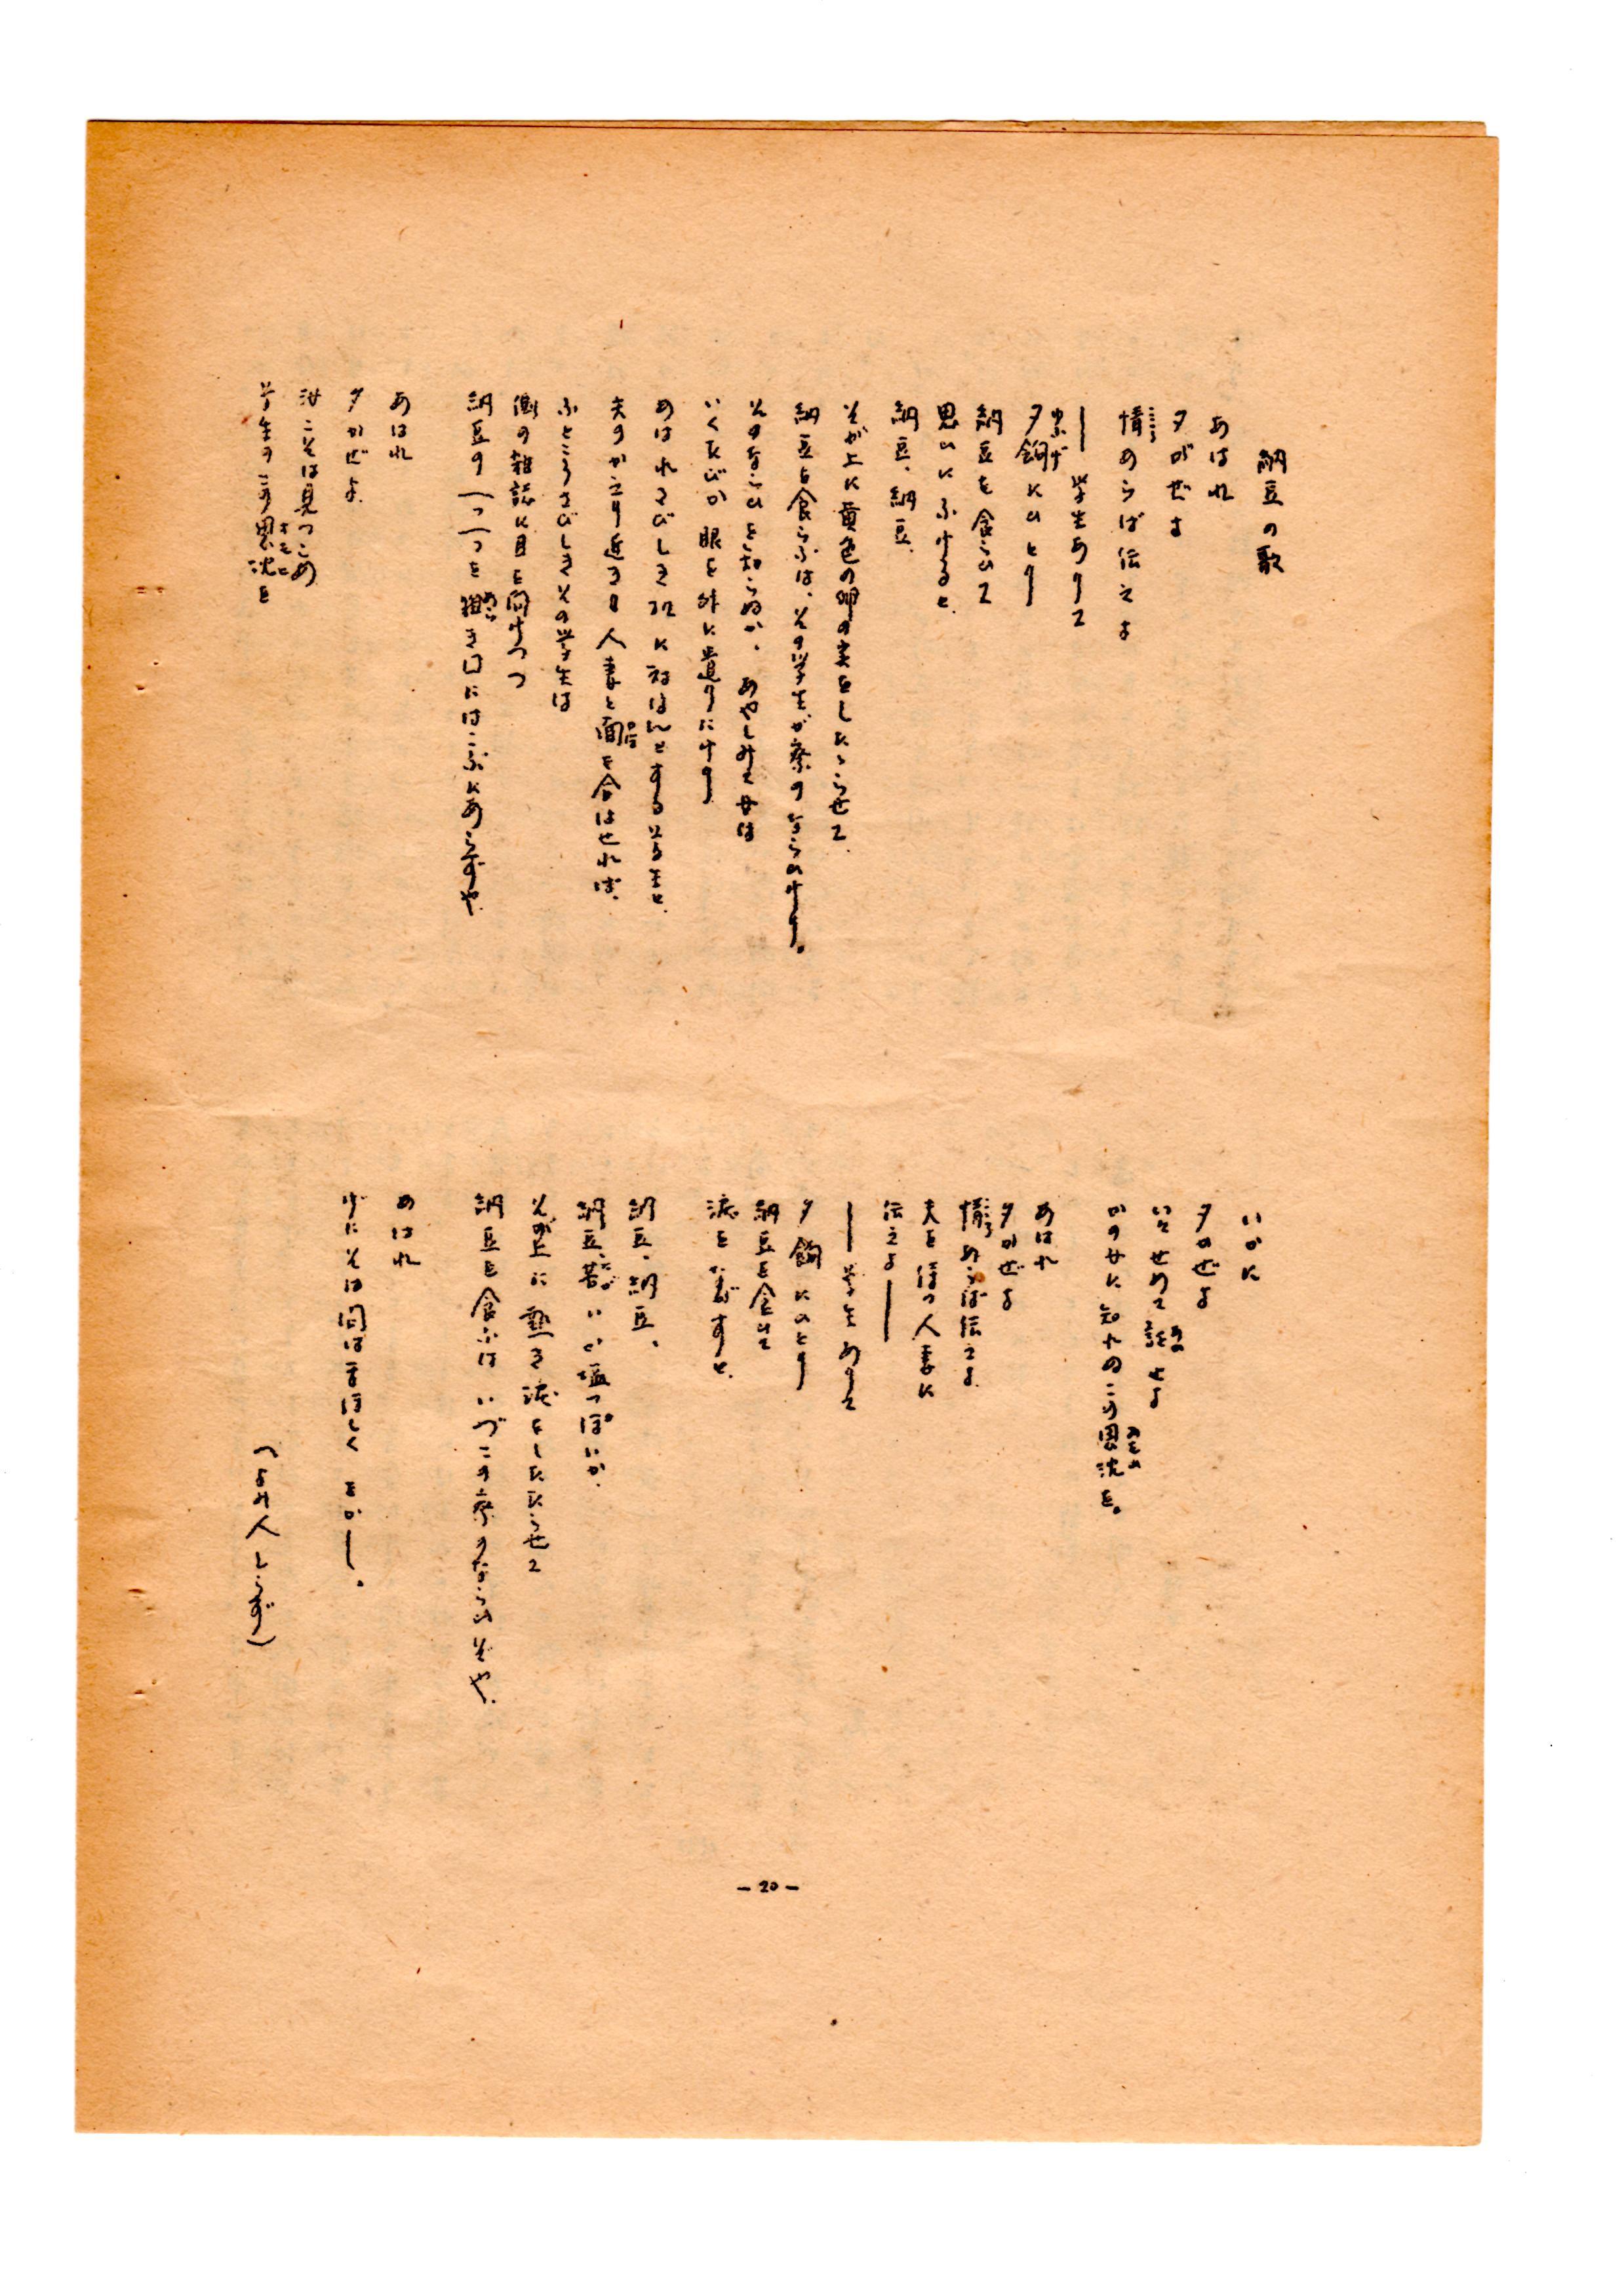 納豆の歌
あはれ
夕がぜよ
情あらば伝えよ
こころ
── 学生ありて
夕餉にひとり
ゆふげ
納豆を食らひて
思ひにふけると。
納豆、納豆、
そが上に黄色の卵の
をしたたらせて、
納豆を食らふは、その学生が寮のならひなり。
そのならひを知らぬか、あやしみて女は
いくたびか眼を外に遣りにけり
あはれさびしき
に
はんとする学生と、
夫のかえり近づく人妻と面を合はせれば、
ふところさびしきその学生は
側の雑誌に目を向けつつ
納豆の一つ一つを
き口にはこぶにあらずや、
あはれ
夕かぜよ、
汝こそは見つらめ
学生のこの思
を
いかに
夕かぜよ
いでせめて証せよ
あか
かの女に知りぬこの思
を。
あはれ
夕かぜよ
情あらば伝えよ、
こころ
夫を
人妻に
伝えよ──
── 学生ありて
夕餉にひとり
納豆を食ひて
涙をながすと、
納豆、納豆、
納豆、苦いか塩っぽいか、
そが上に熱き涙をしたたらせて
納豆を食ふは いづこの寮のならひぞや、
あはれ
げにそは問はまほしくをかし。
（よみ人しらず）
－20－